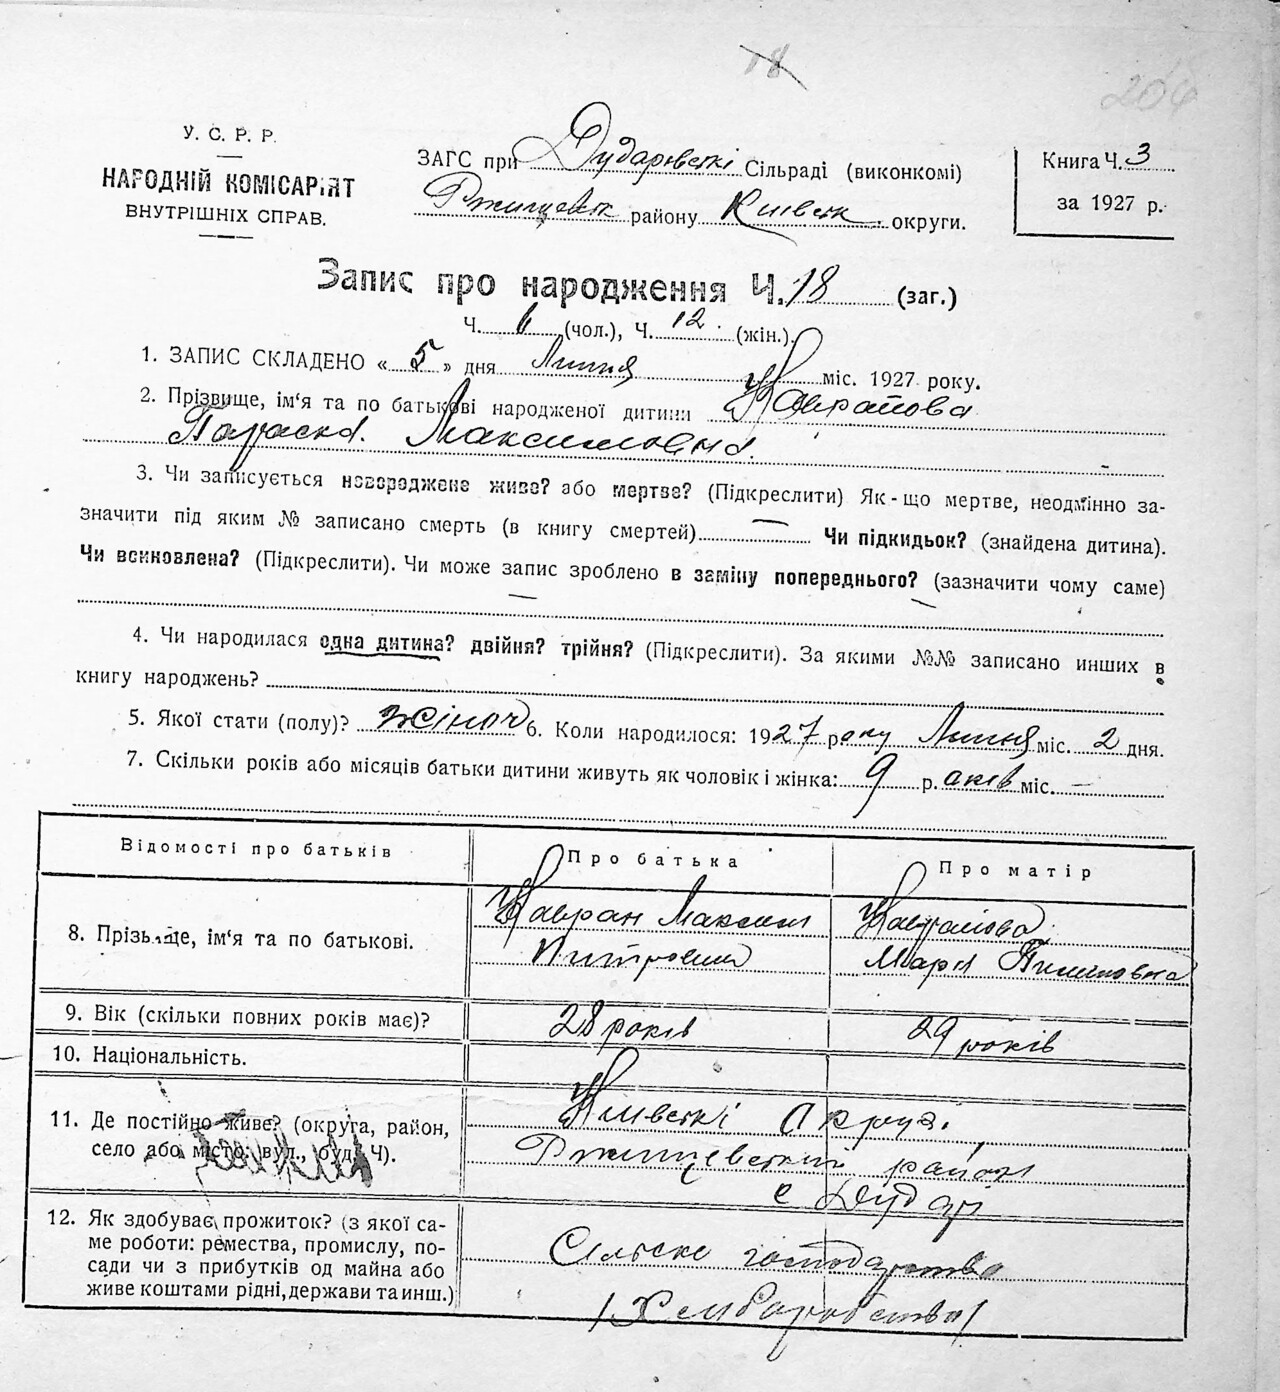 18
206
У. С. Р. Р.
НАРОДНІЙ КОМІСАРІЯТ
ВНУТРІШНІХ СПРАВ.
ЗАГС при Дударівскі Сільраді (виконкомі)
Ржищевск району Київск округи.
Книга Ч. 3
за 1927 р.
Запис про народження Ч. 18 (заг.)
Ч. 6 (чол.), Ч. 12. (жін.).
1. ЗАПИС СКЛАДЕНО « 5 » дня Липня міс. 1927 року.
2. Прізвище, ім'я та по батькові народженої дитини
Параска. Максимовна.
3. Чи записується новороджене живе? або мертве? (Підкреслити) Як-що мертве, неодмінно за-
значити під яким № записано смерть (в книгу смертей) — Чи підкидьок? (знайдена дитина).
Чи всиновлена? (Підкреслити). Чи може запис зроблено в заміну попереднього? (зазначити чому саме)
4. Чи народилася одна дитина? двійня? трійня? (Підкреслити). За якими №№ записано инших в
книгу народжень?
5. Якої стати (полу)? жіноч 6. Коли народилося: 1927 року Липня міс. 2 дня.
7. Скільки років або місяців батьки дитини живуть як чоловік і жінка: 9 р. оків міс. —
Відомості про батьків
Про батька
Про матір
8. Прізвище, ім'я та по батькові.
Максим
Питрович
Марія Пилиповна
9. Вік (скільки повних років має)?
28 років
29 років
10. Національність.
11. Де постійно живе? (округа, район,
село або місто: вул., буд. Ч).
Київскі Округі
Ржищевський район
с Дударі
12. Як здобуває прожиток? (з якої са-
ме роботи: ремества, промислу, по-
сади чи з прибутків од майна або
живе коштами рідні, держави та инш.)
Сільске господарство
/Хемборобство/